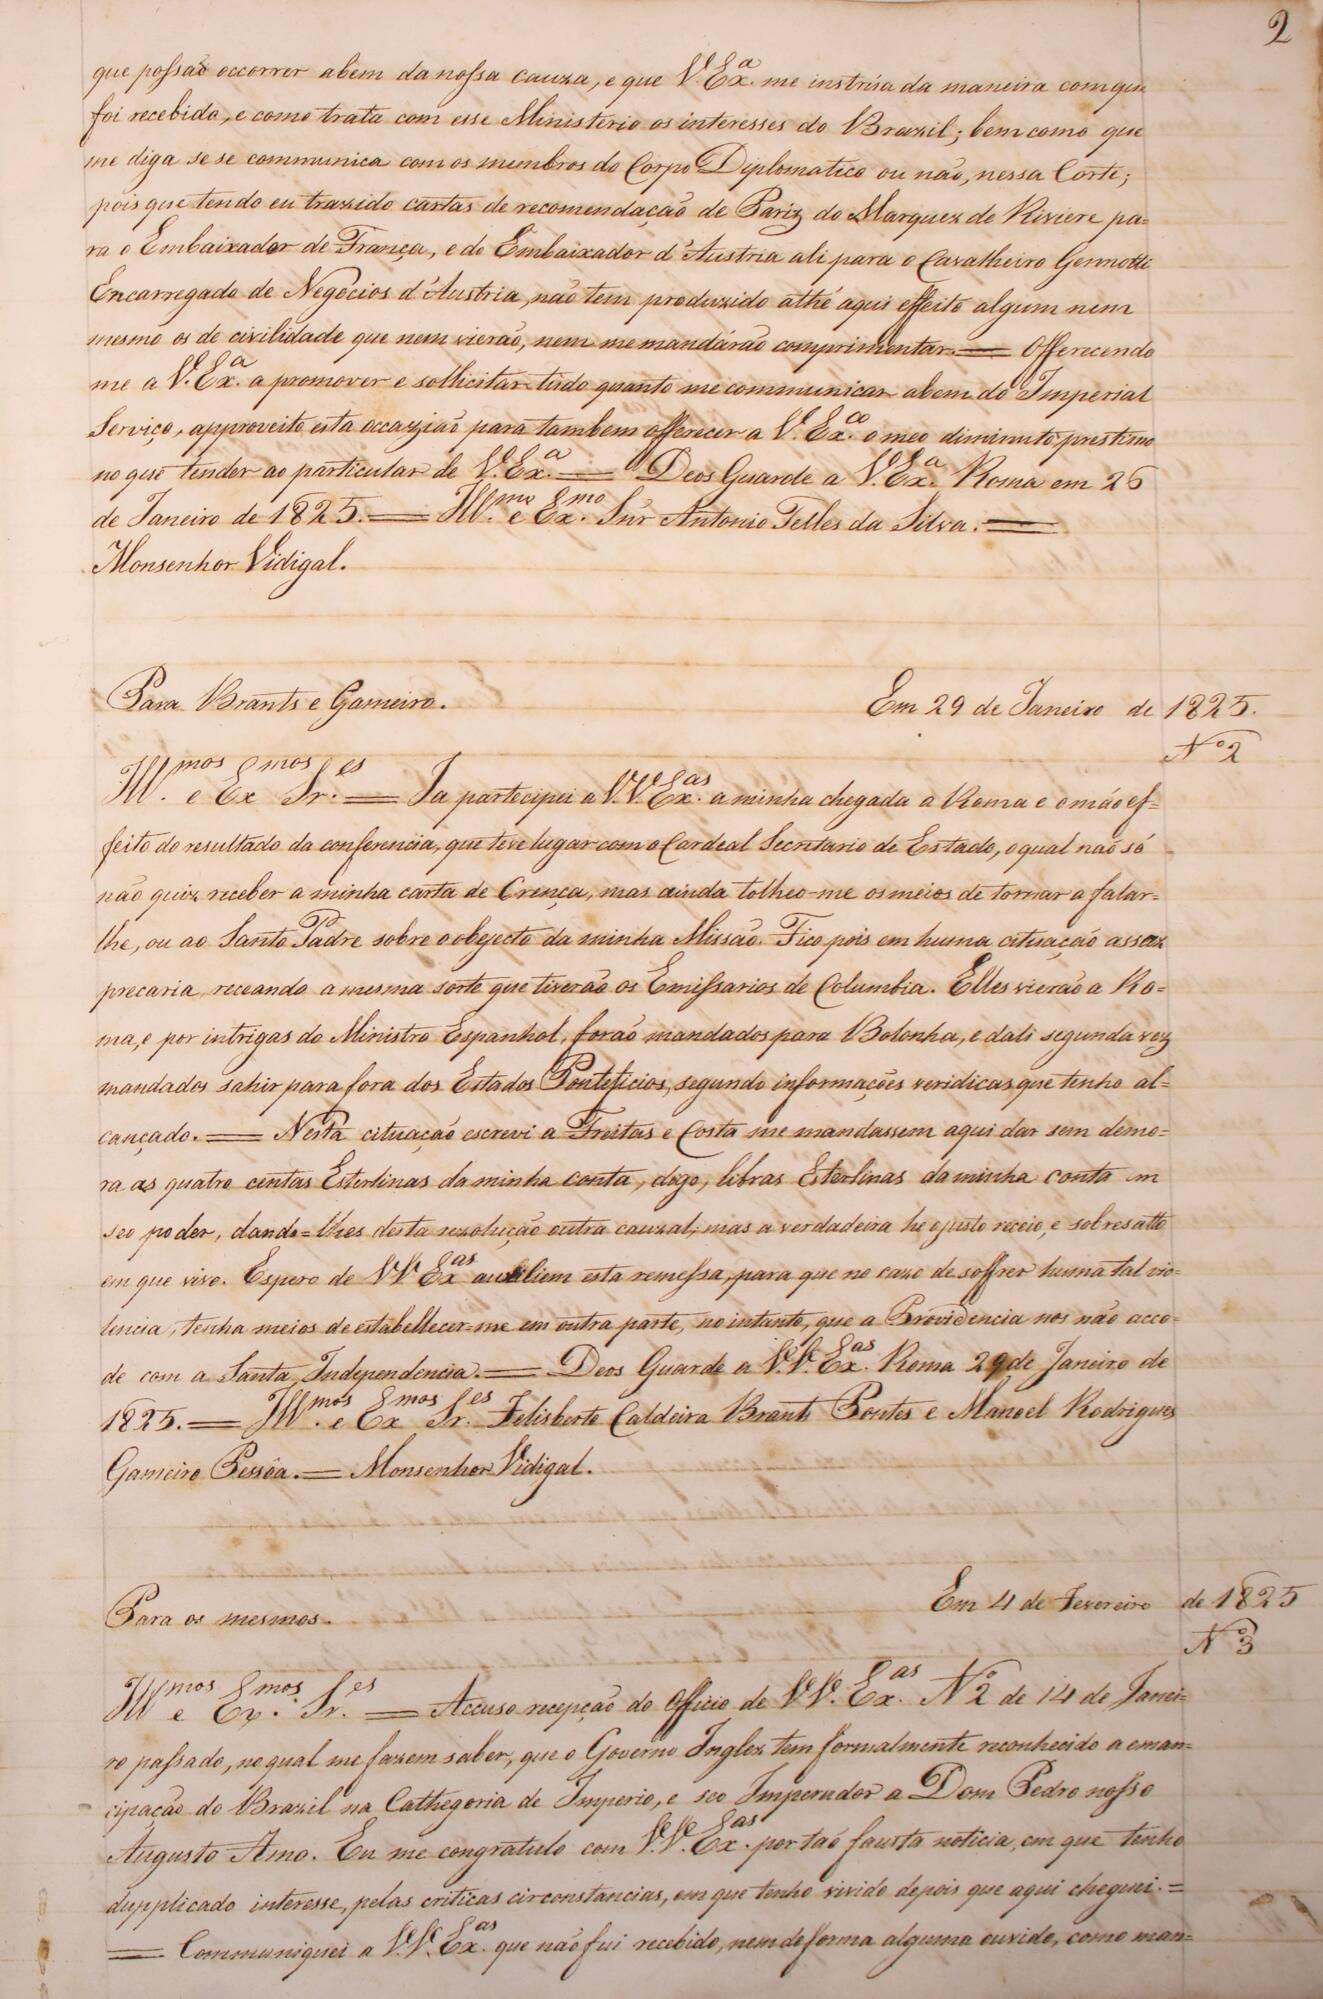 2
que possaõ occorrer abem da nossa cauza, e que V. Exª. me instrúa da maneira com que
foi recebido, e como trata com esse Ministerio os interesses do Brazil; bem como que
me diga se se communica com os membros do Corpo Diplomatico ou não, nessa Corte;
pois que tendo eu trazido cartas de recomendação de Pariz do Marquez de Riviere pa-
ra o Embaixador de França, e do Embaixador d'Austria ali para o Cavalheiro Gennotti
Encarregado de Negocios d'Austria, não tem produzido athé aqui effeito algum nem
mesmo os de civilidade que nem vierão, nem me mandárão comprimentar. = Offerecendo
me a V. Exª. a promover e sollicitar tudo quanto me communicar abem do Imperial
Serviço, approveito esta occazião para tambem offerecer a V. Exco. o meo diminuto prestimo
no que tender ao particular de V. Exª. = Deos Guarde a V. Exª. Roma em 26
de Janeiro de 1825. = Illmo. e Exmo. Snr Antonio Telles da Silva. =
Monsenhor Vidigal.
Para Brants e Gameiro. Em 29 de Janeiro de 1825.
Nº 2
Illmos. e Exmos Sres. = Ja partecipei a V.V. Exas. a minha chegada a Roma e o máo ef-
feito do resultado da conferencia, que teve lugar com o Cardeal Secretario de Estado, o qual naõ só
não quiz receber a minha carta de Crença, mas ainda tolheo-me os meios de tornar a falar-
lhe, ou ao Santo Padre sobre o obejecto da minha Missão. Fico pois em huma cituação assaz
precaria, receando a mesma sorte que tiverão os Emissarios de Columbia. Elles vierão a Ro-
ma, e por intrigas do Ministro Espanhol, foraõ mandados para Bolonha, e dali segunda vez
mandados sahir para fora dos Estados Ponteficios, segundo informações veridicas que tenho al-
cançado. = Nesta cituação escrevi a Freitas e Costa me mandassem aqui dar sem demo-
ra as quatro centas Esterlinas da minha conta, digo, libras Esterlinas da minha conta em
seo poder, dando-lhes desta rezolução outra cauzal; mas a verdadeira he o justo receio, e sobresalto
em que vivo. Espero de V.V. Exas auxiliem esta remessa, para que no cazo de soffrer huma tal vio-
lencia, tenha meios de estabellecer-me em outra parte, no intanto, que a Providencia nos não acco-
de com a Santa Independencia. = Deos Guarde a V.V. Exas. Roma 29 de Janeiro de
1825. = Illmos. e Exmos Sres. Felisberto Caldeira Brants Pontes e Manoel Rodrigues
Gameiro Pessôa. = Monsenhor Vidigal.
Para os mesmos. Em 4 de Fevereiro de 1825
Nº 3
Illmos e Exmos. Sres. = Accuso recepção do Officio de V.V. Exas. Nº 2 de 14 de Janei-
ro passado, no qual me fazem saber, que o Governo Inglez tem formalmente reconhecido a eman-
cipação do Brazil na Cathegoria de Imperio, e seo Imperador a Dom Pedro nosso
Augusto Amo. Eu me congratulo com V.V. Exas. por taõ fausta noticia, em que tenho
dupplicado interesse, pelas criticas circonstancias, em que tenho vivido depois que aqui cheguei. =
= Communiquei a V.V. Exas. que não fui recebido, nem de forma alguma ouvido, como man-